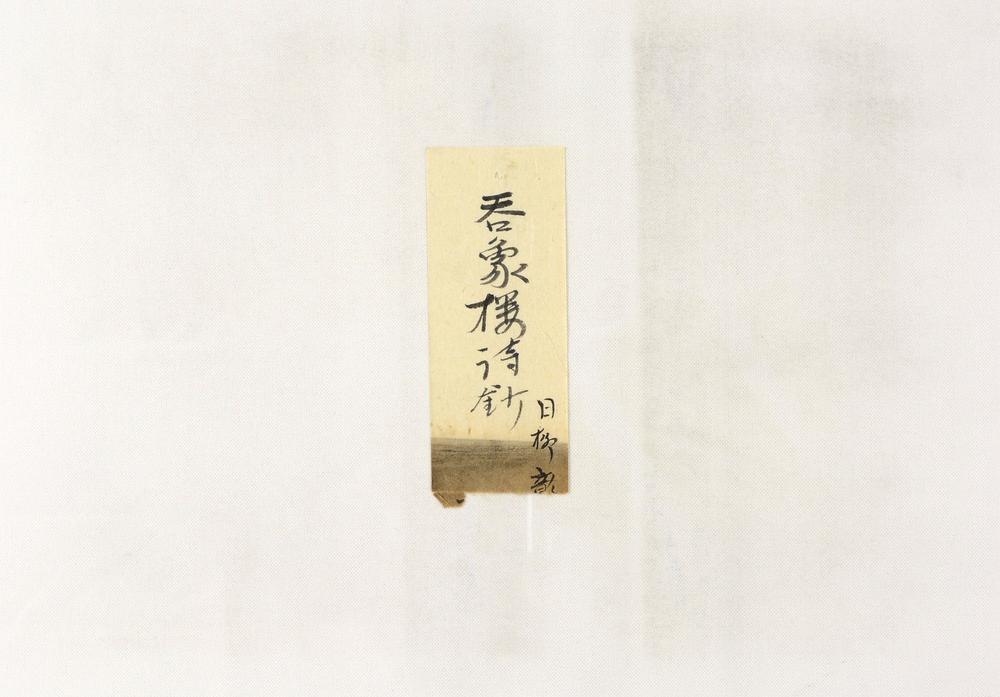 呑象楼詩鈔
日柳